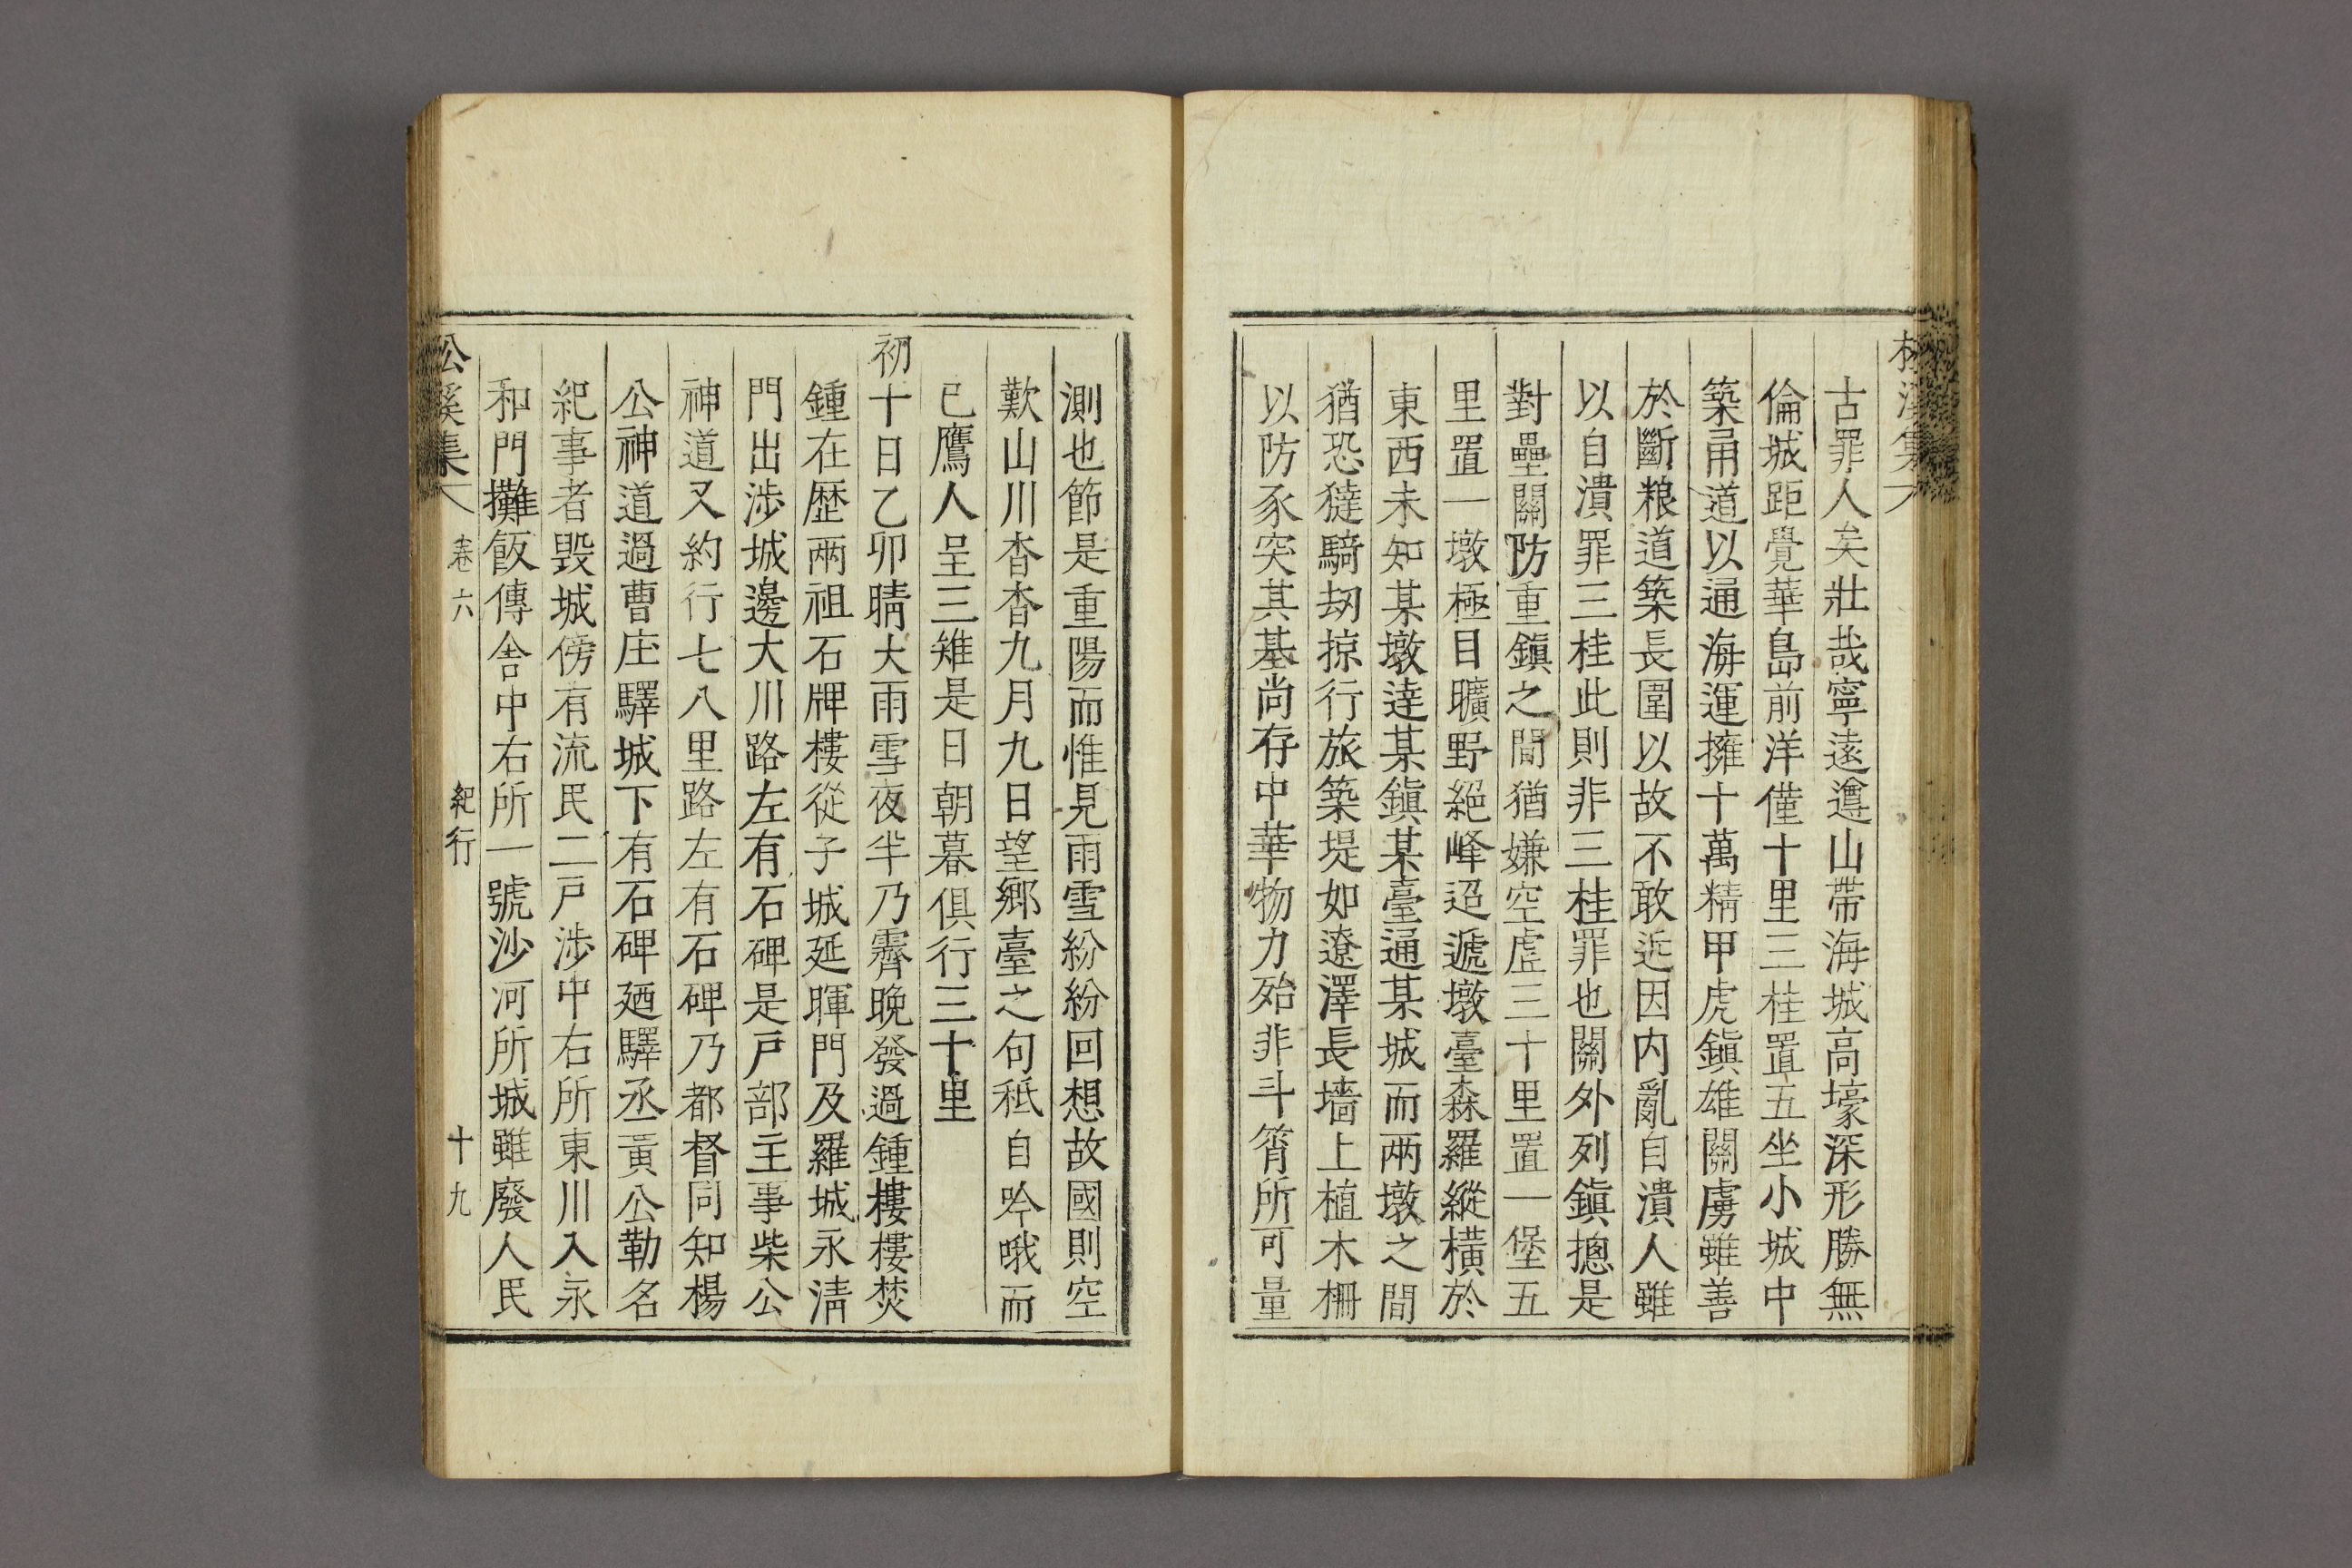 古罪人矣壯哉寧遠遵山帶海城高壕深形勝無
倫城距覺華島前洋僅十里三桂置五坐小城中
築甬道以通海運擁十萬精甲虎鎭雄關虜雖善
於斷粮道築長圍以故不敢近因内亂自潰人雖
以自潰罪三桂此則非三桂罪也關外列鎭摠是
對壘關防重鎭之間猶嫌空虛三十里置一堡五
里置一墩極目曠野絕峰迢遞墩臺森羅縱橫於
東西未知某墩達某鎭某臺通某城而兩墩之間
猶恐㺚騎刼掠行旅築堤如遼澤長墻上植木柵
以防豕突其基尚存中華物力殆非斗筲所可量
測也節是重陽而惟見雨雪紛紛回想故國則空
歎山川杳杳九月九日望鄉臺之句秪自吟哦而
已鷹人呈三雉是日朝暮俱行三十里
初十日乙卯晴大雨雪夜半乃霽晚發過鍾樓樓焚
鍾在歷兩祖石牌樓從子城延暉門及羅城永淸
門出涉城邊大川路左有石碑是戶部主事柴公
神道又約行七八里路左有石碑乃都督同知楊
公神道過曹庄驛城下有石碑廼驛丞貢公勒名
紀事者毁城傍有流民二戶涉中右所東川入永
和門攤飯傳舍中右所一號沙河所城雖廢人民
集 卷六 紀行 十九